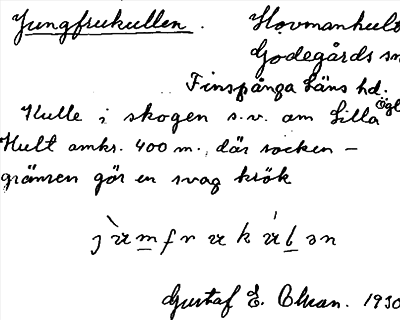 Jungfrukullen. Hovmanhult
Godegårds sn
Finspånga läns hd.
Ögl
Kulle i skogen s.v. om Lilla
Hult omkr. 400 m., där socken-
gränsen gör en svag krök
Gustaf E. Olsan. 1930